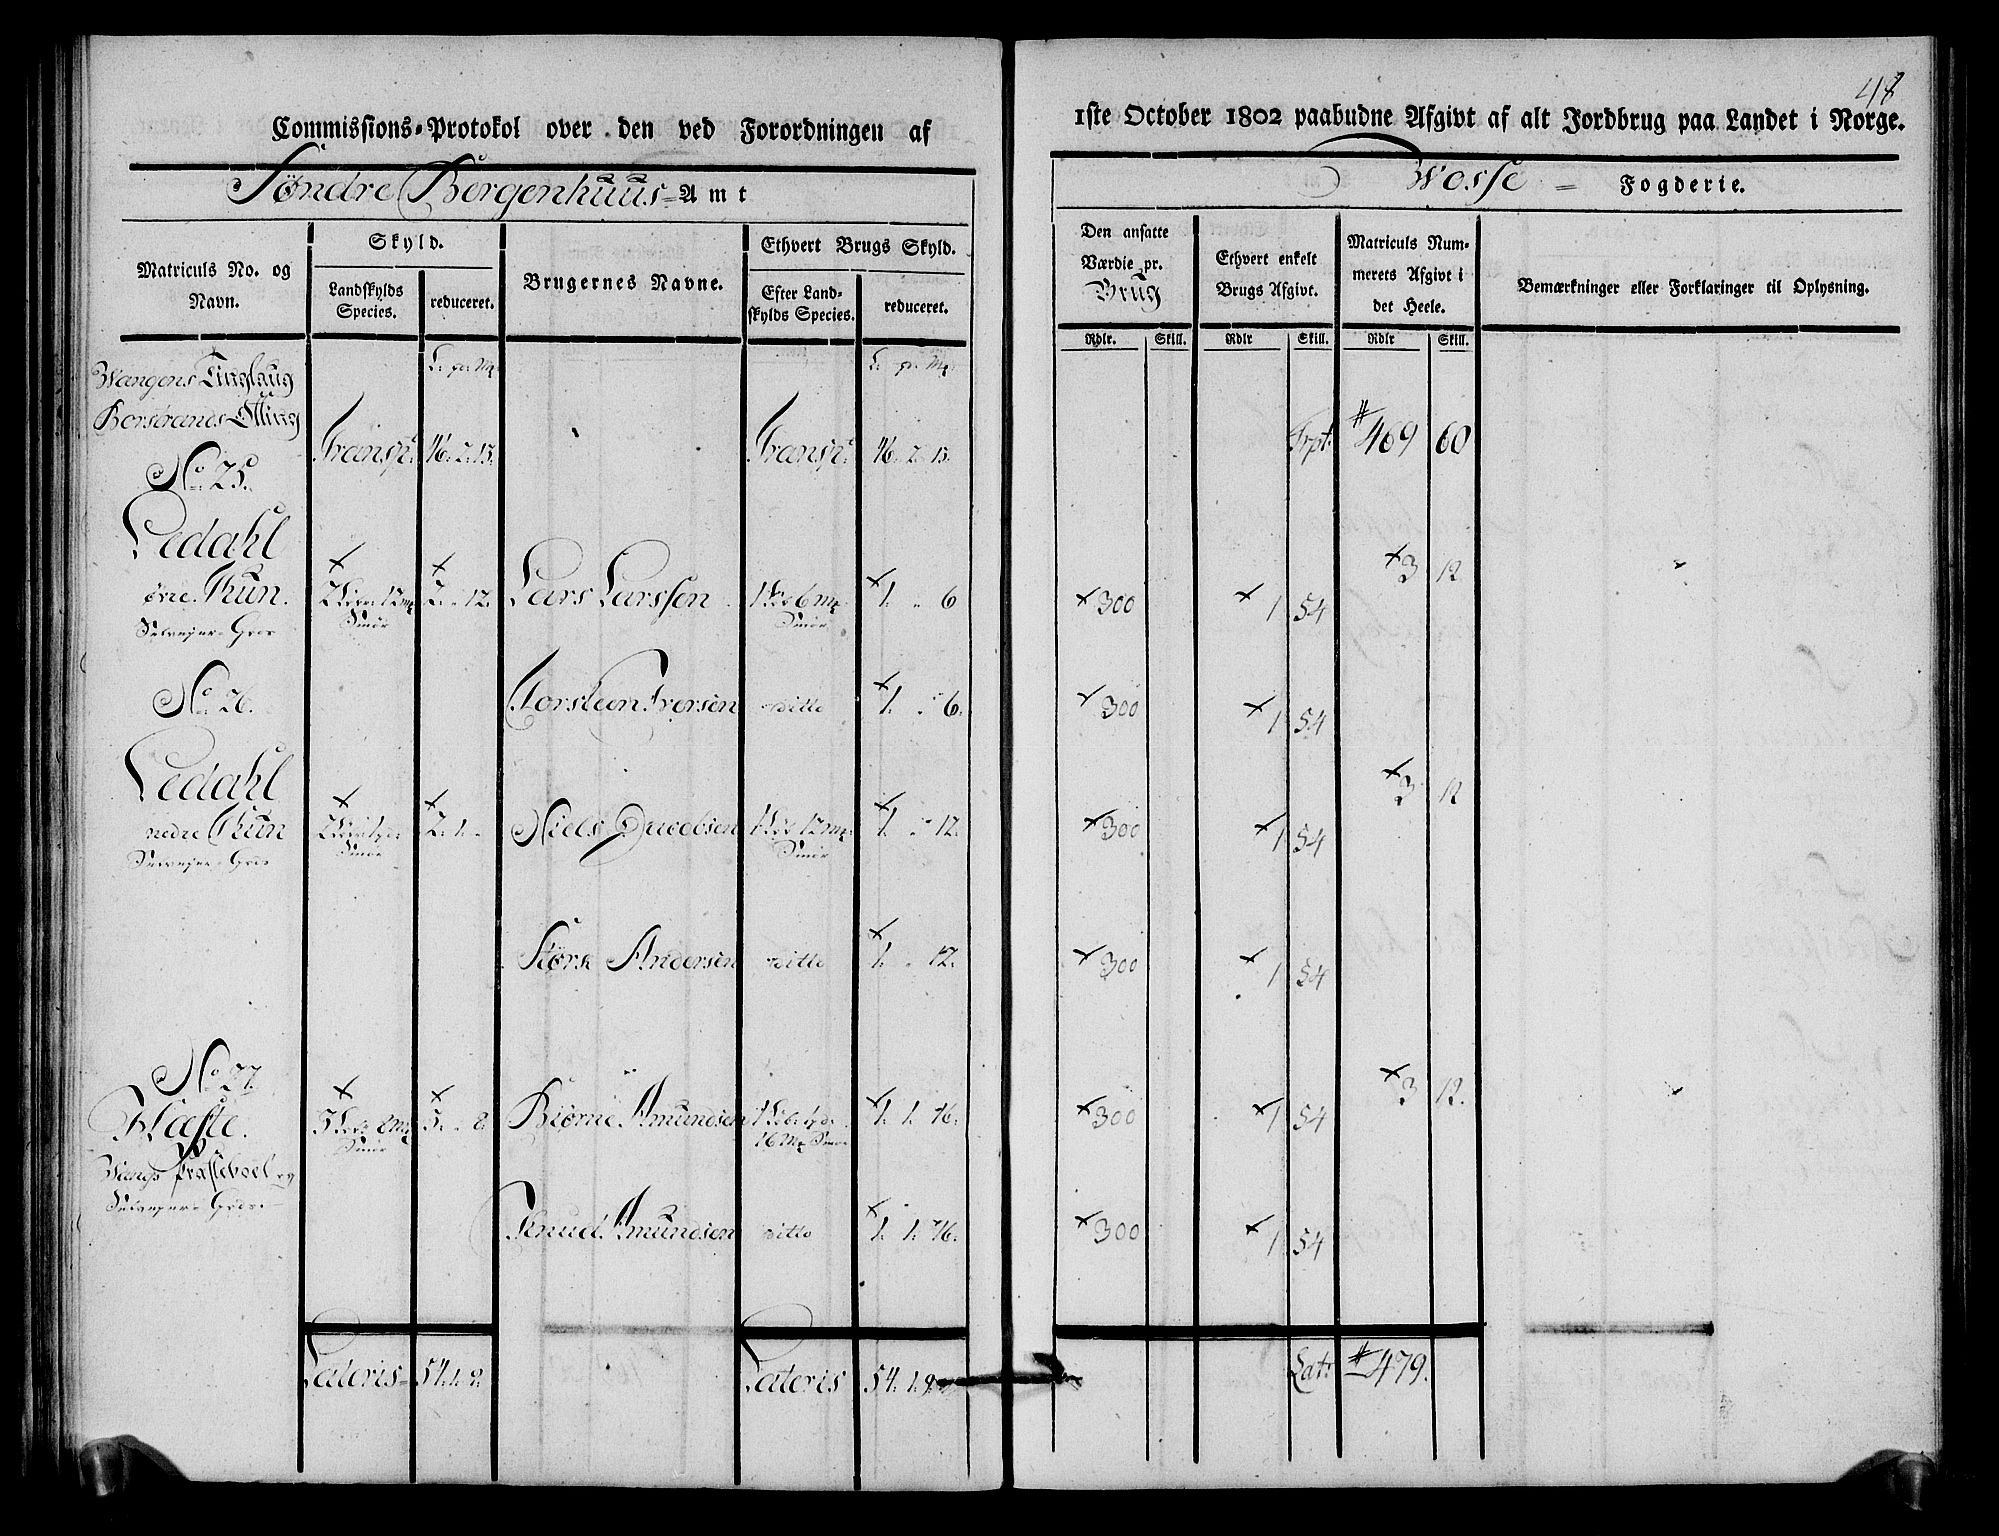 48
Commissions-Protokol over den ved Forordningen af
1ste October 1802 paabudne Afgivt af alt Jordbrug paa Landet i Norge.
Søndre Bergenhuus Amt
Wosse Fogderie.
Matriculs No. og Navn.
Skyld.
Landskylds Species.
reduceret.
Brugernes Navne.
Ethvert Brugs Skyld.
Efter Landskylds Species.
reduceret.
Den ansatte Værdie pr. Brug
Ethvert enkelt Brugs Afgivt.
Matriculs Nummerets Afgivt i det Heele.
Bemærkninger eller Forklaringer til Oplysning.
Rdlr. Skill. Rdlr Skill. Rdlr Skill.
Wangens Tinglaug
Borstrands Otting
Transp. 46. 2. 15. Transp. 46. 2. 15. Trpt. 469 60
No 25.
Ledahl
øvre Thun.
Selvejer Gods
2 12 mk Smør 2. " 12. Lars Larssen 1 6 mk Smør 1. " 6 300 1 54 3 12
No 26.
Torsteen Iversen ditto 1. " 6. 300 1 54
Ledahl
nedre Thun
Selvejer Gods
Smør 2. 1. " Niels Jacobsen 1 12 mk Smør 1. " 12. 300 1 54 3 12
Størk Andersen ditto 1. " 12. 300 1 54
No 27.
Flæste.
Wangs Præsteboel og
Selvejer Gods
Smør 3. " 8. Biørne Amundsen 16 mk Smør 1. 1. 16. 300 1 54 3 12.
Knud Amundsen ditto 1. 1. 16. 300 1 54
Lateris 54. 1. 2. Lateris 54. 1. 2. Lat: 479.